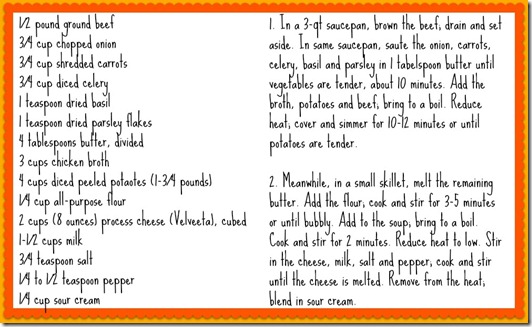 1/2 pound ground beef
3/4 cup chopped onion
3/4 cup shredded carrots
3/4 cup diced celery
1 teaspoon dried basil
1 teaspoon dried parsley flakes
4 tablespoons butter, divided
3 cups chicken broth
4 cups diced peeled potaotes (1-3/4 pounds)
1/4 cup all-purpose flour
2 cups (8 ounces) process cheese (Velveeta), cubed
1-1/2 cups milk
3/4 teaspoon salt
1/4 to 1/2 teaspoon pepper
1/4 cup sour cream
1. In a 3-qt saucepan, brown the beef; drain and set
aside. In same saucepan, saute the onion, carrots,
celery, basil and parsley in 1 tabelspoon butter until
vegetables are tender, about 10 minutes. Add the
broth, potatoes and beef; bring to a boil. Reduce
heat; cover and simmer for 10-12 minutes or until
potatoes are tender.
2. Meanwhile, in a small skillet, melt the remaining
butter. Add the flour; cook and stir for 3-5 minutes
or until bubbly. Add to the soup; bring to a boil.
Cook and stir for 2 minutes. Reduce heat to low. Stir
in the cheese, milk, salt and pepper; cook and stir
until the cheese is melted. Remove from the heat;
blend in sour cream.